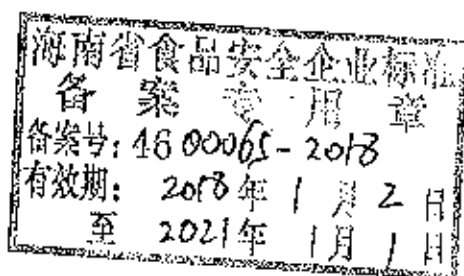 海南省食品安全企业标准
备案专用章
备案号：4600065-2018
有效期：2018年1月2日
至2021年1月1日